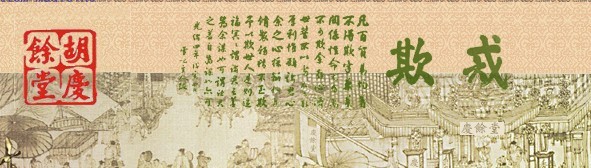 戒欺
凡百貿易均着
不得欺字藥業
關係性命尤為
不可欺余存心
世誓不以劣
厚利惟願諸君心
余之心採辦
精不至欺
予以欺世人是則造
福冥冥謂諸君之善
為余謀也可謂諸君
之善自為謀亦可
光緒四年
雪記主人
胡慶餘堂
慶餘堂
慶餘堂